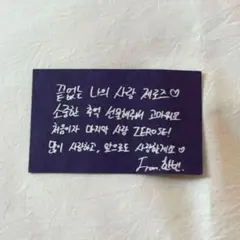 끝없는 나의 사랑 제로즈♡
소중한 추억 선물해줘서 고마워요
처음이자 마지막 사랑 ZEROSE!
많이 사랑하고, 앞으로도 사랑할게요♡
From.한빈.